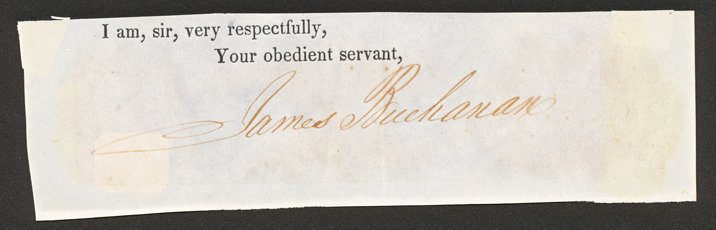 I am, sir, very respectfully,
Your obedient servant,
James Buchanan